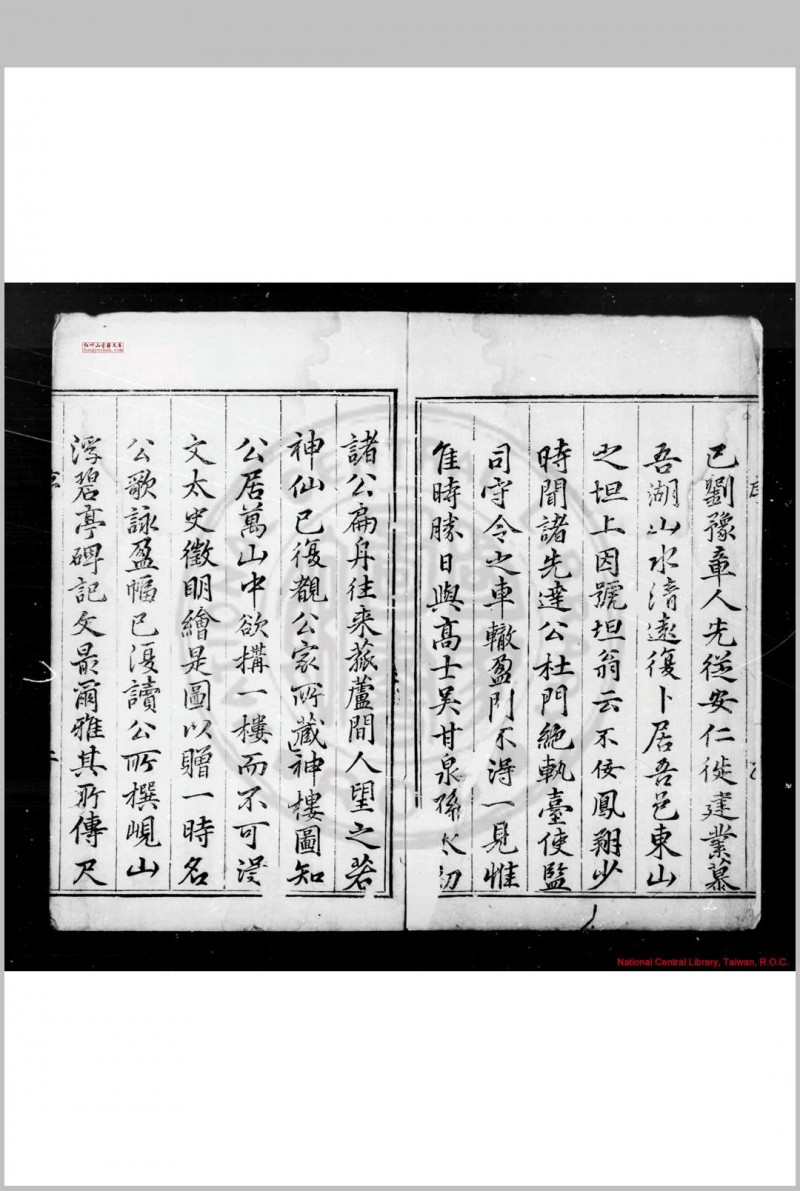 已劉豫章人先從安仁徙建業慕
吾湖山水清遠復卜居吾邑東山
之坦上因號坦翁云不佞鳳翔少
時聞諸先達公杜門絕軌臺使監
司守令之車轍盈門不得一見惟
佳時勝日與高士吳甘泉孫太初
諸公扁舟往来菰蘆間人望之若
神仙已復覩公家所藏神樓圖知
公居萬山中欲構一樓而不可淂
文太史徵明繪是圖以贈一時名
公歌詠盈幅已復讀公所撰峴山
浮碧亭碑記文最爾雅其所傳尺
红叶山古籍文库
hongyeshan.com
National Central Library, Taiwan, R.O.C.